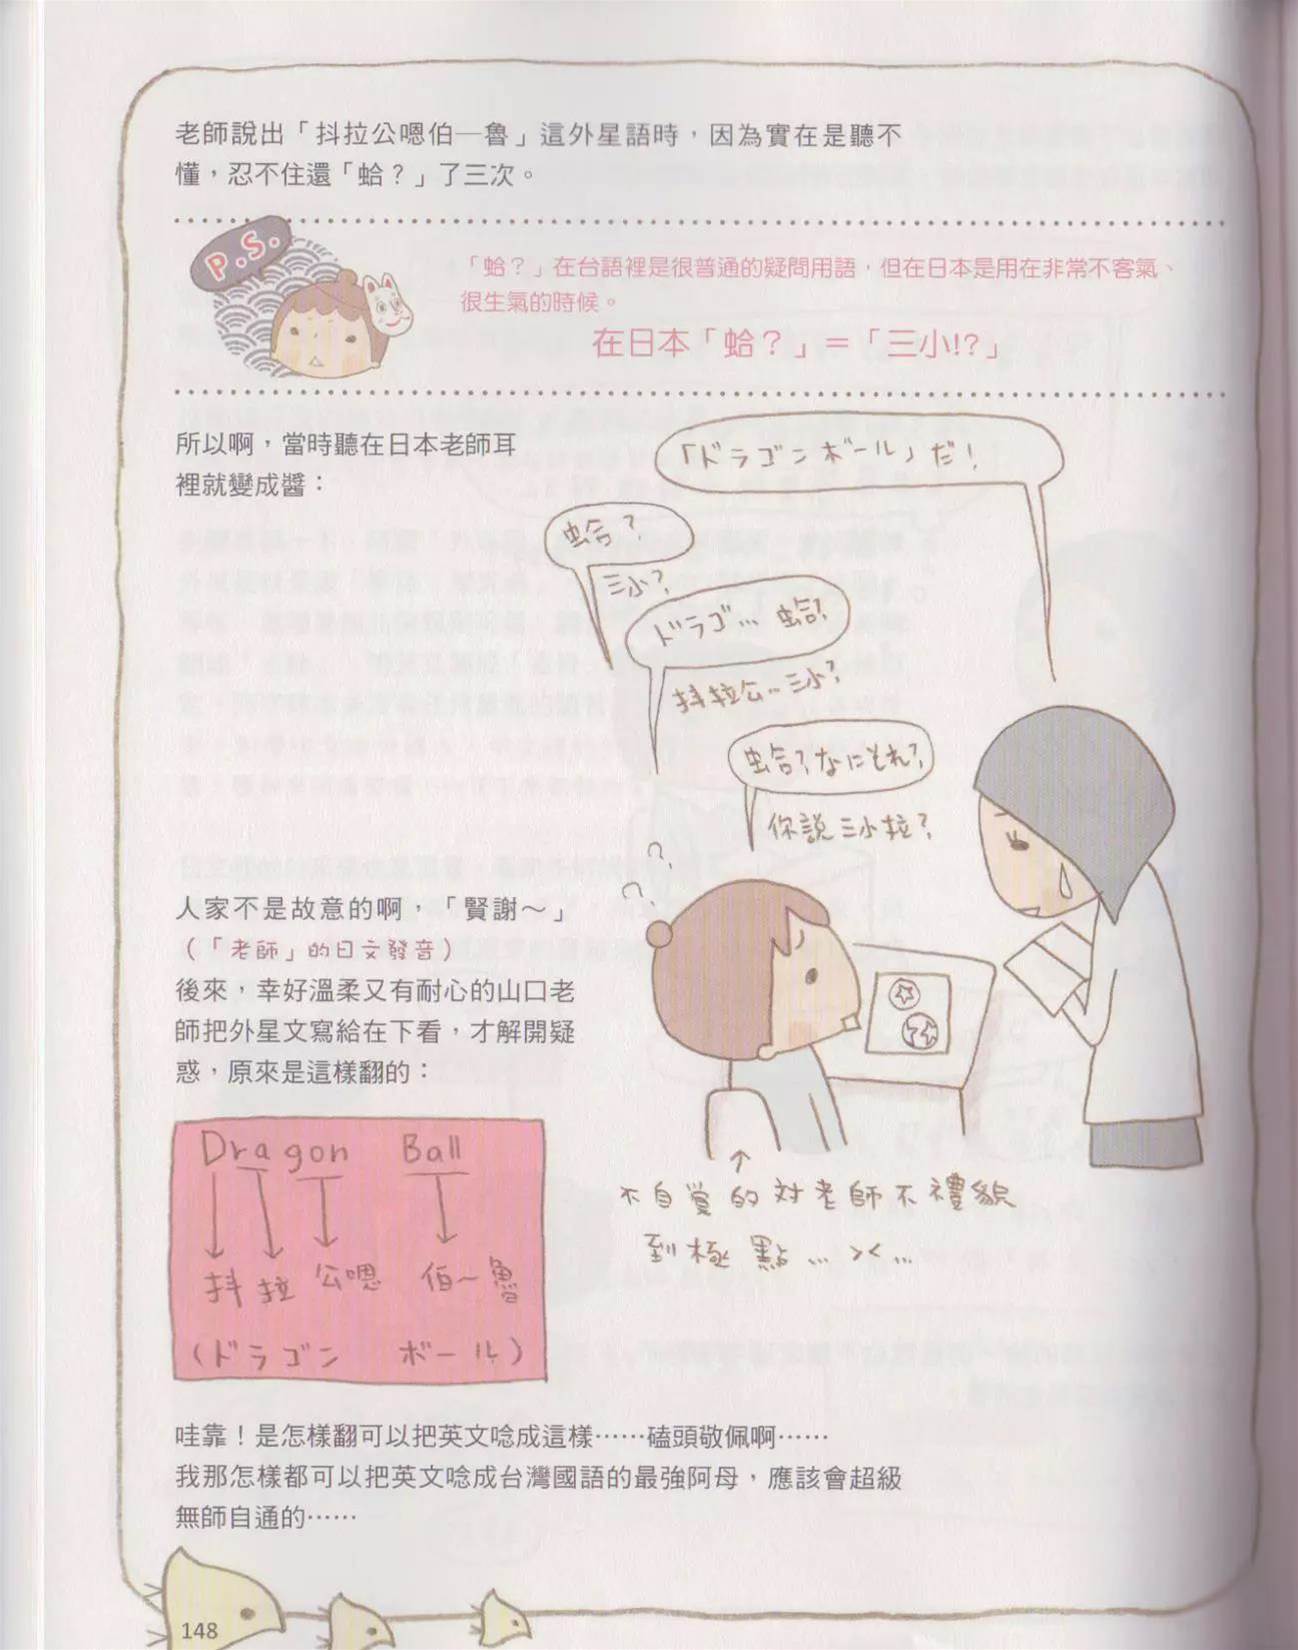 老師說出「抖拉公嗯伯─魯」這外星語時，因為實在是聽不
懂，忍不住還「蛤？」了三次。
P.S.
「蛤？」在台語裡是很普通的疑問用語，但在日本是用在非常不客氣、
很生氣的時候。
在日本「蛤？」＝「三小!?」
所以啊，當時聽在日本老師耳
裡就變成醬：
「ドラゴンボール」だ！
蛤？
三小？
ドラゴ... 蛤？
抖拉公...三小？
蛤？なにそれ？
你說三小拉？
？？？
人家不是故意的啊，「賢謝～」
（「老師」的日文發音）
後來，幸好溫柔又有耐心的山口老
師把外星文寫給在下看，才解開疑
惑，原來是這樣翻的：
不自覺的対老師不禮貌
到極點... ><...
Dragon Ball
抖拉公嗯 伯～魯
（ドラゴン ボール）
哇靠！是怎樣翻可以把英文唸成這樣⋯⋯磕頭敬佩啊⋯⋯
我那怎樣都可以把英文唸成台灣國語的最強阿母，應該會超級
無師自通的⋯⋯
148